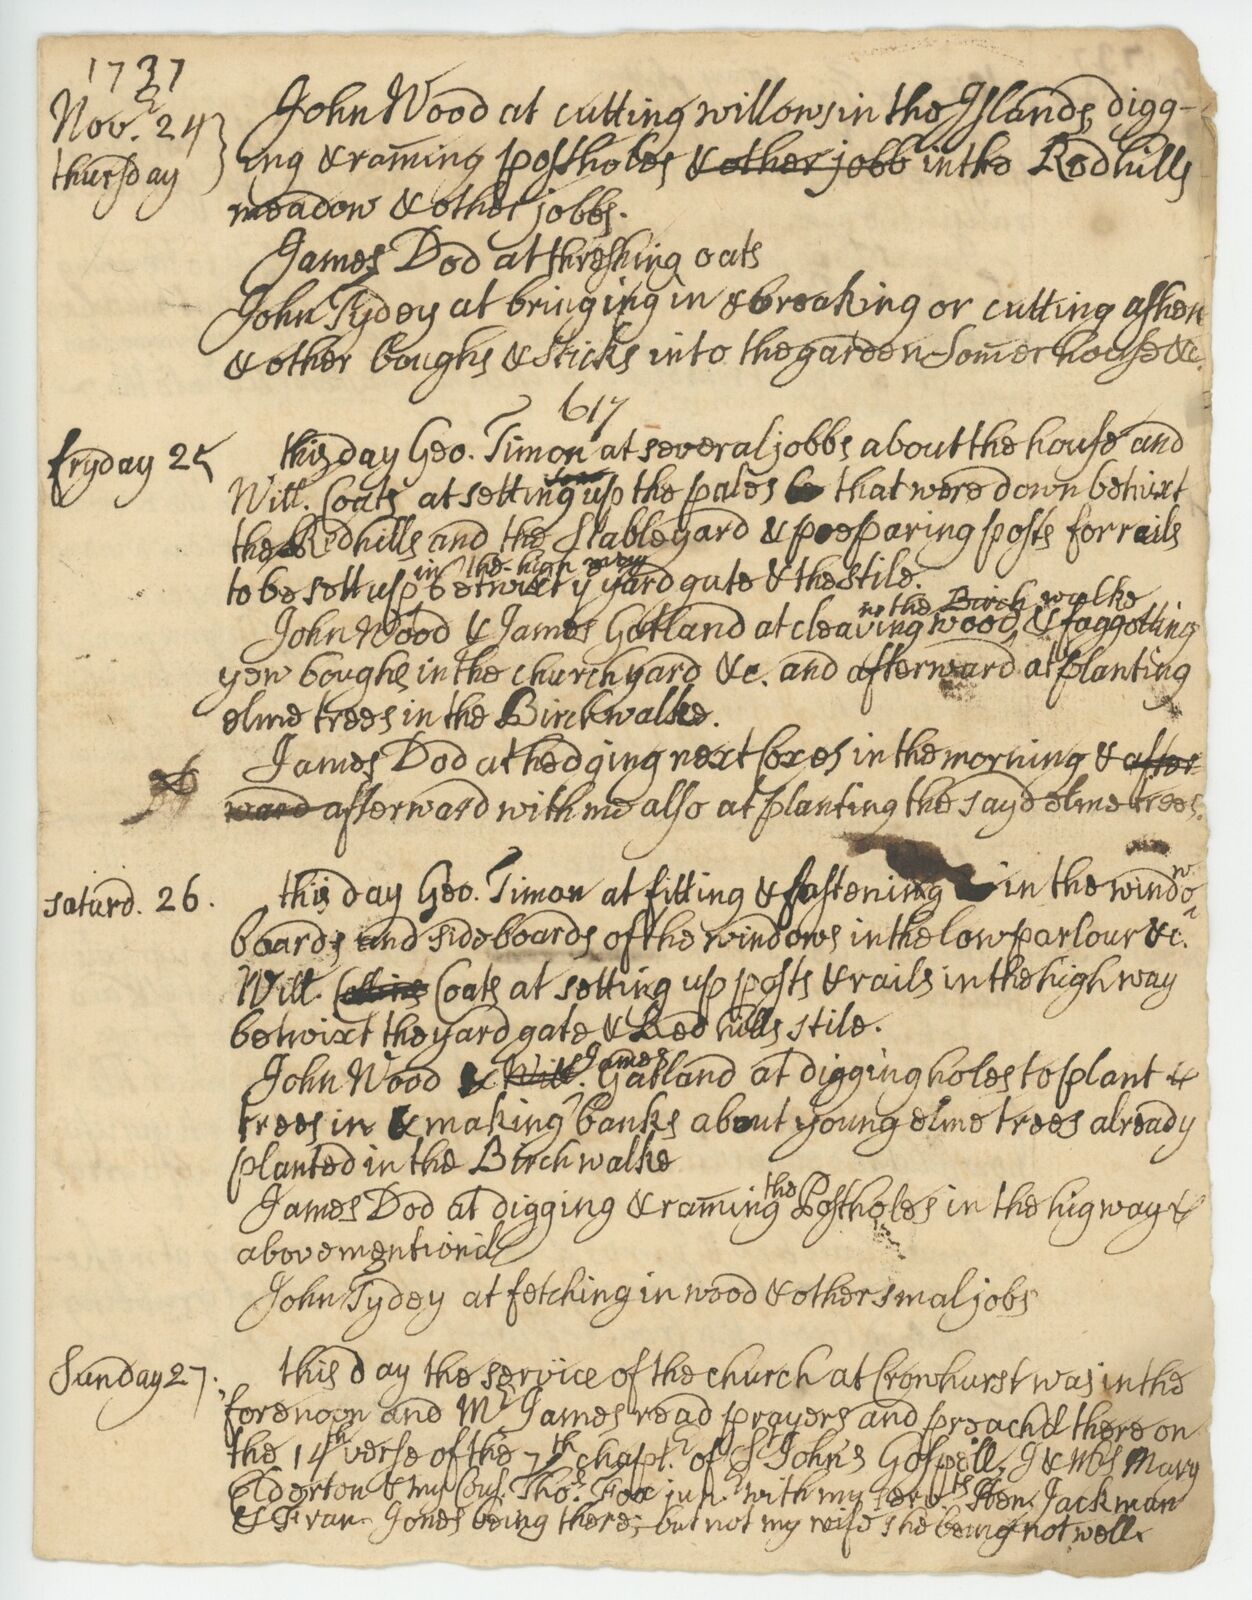 1737
Nov. 24 John Wood at cutting willows in the Islands, digg-
thursday ing & raming postholes & other jobb in the Redhills
meadow & other jobbs.
James Dod at threshing oats
John Tydey at bringing in & breaking or cutting ashen
& other boughs & sticks into the garden-Somerhouse &c.
617
fryday 25 this day Geo. Timon at several jobbs about the house and
Will. Coats at setting up the pales that were down betwixt
the Redhills and the Stableyard & preparing posts for rails
in the high way
to be sett up betwixt y yard gate & the stile.
in the Birch walke
John Wood & James Gatland at cleaving wood & faggotting
yew boughs in the churchyard &c. and afterward at planting
elme trees in the Birchwalke.
James Dod at hedging next Coxes in the morning & after-
ward afterward with me also at planting the sayd elme trees.
saturd. 26. this day Geo. Timon at fitting & fastening in the window
boards and sideboards of the windows in the low parlour &c.
Will. Collins Coats at setting up posts & rails in the high way
betwixt the yard gate & Redhills stile.
James
John Wood & Will. Gatland at digging holes to plant
trees in & making banks about young elme trees already
planted in the Birchwalke
the
James Dod at digging & raming Postholes in the higway
abovementiond
John Tydey at fetching in wood & other smal jobs
Sunday 27. this day the service of the church at Crowhurst was in the
forenoon and Mr James read prayers and preachd there on
the 14th verse of the 7th chapt. of St John's Gospell, I & Mrs Mary
Elderton & my Cous. Thos. Fox jun. with my servts Hen. Jackman
& Fran. Jones being there; but not my wife she being not well.